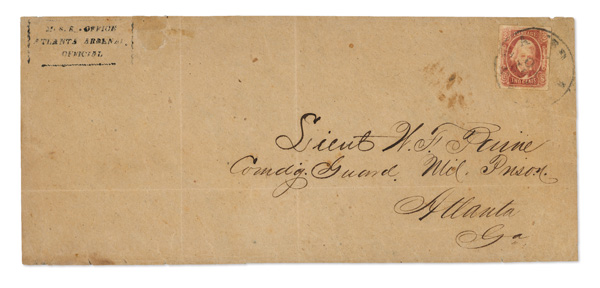 M.S.K. OFFICE
ATLANTA ARSENAL
OFFICIAL
TWO CENTS
Lieut W. F.
Comdg. Guard. Mil. Prison.
Atlanta
Ga